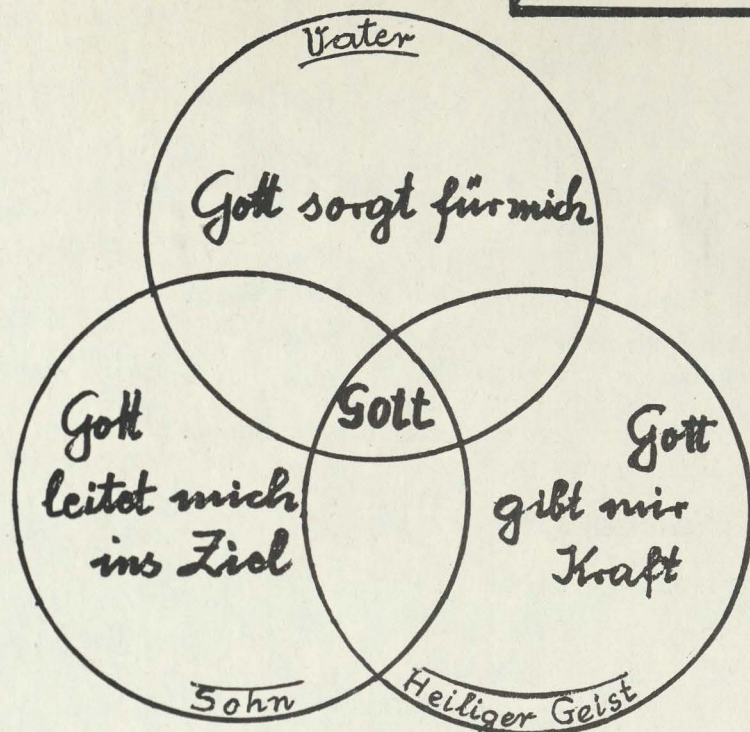 Vater
Gott sorgt für mich
Gott
Gott
leitet mich
ins Ziel
Gott
gibt mir
Kraft
Sohn
Heiliger Geist